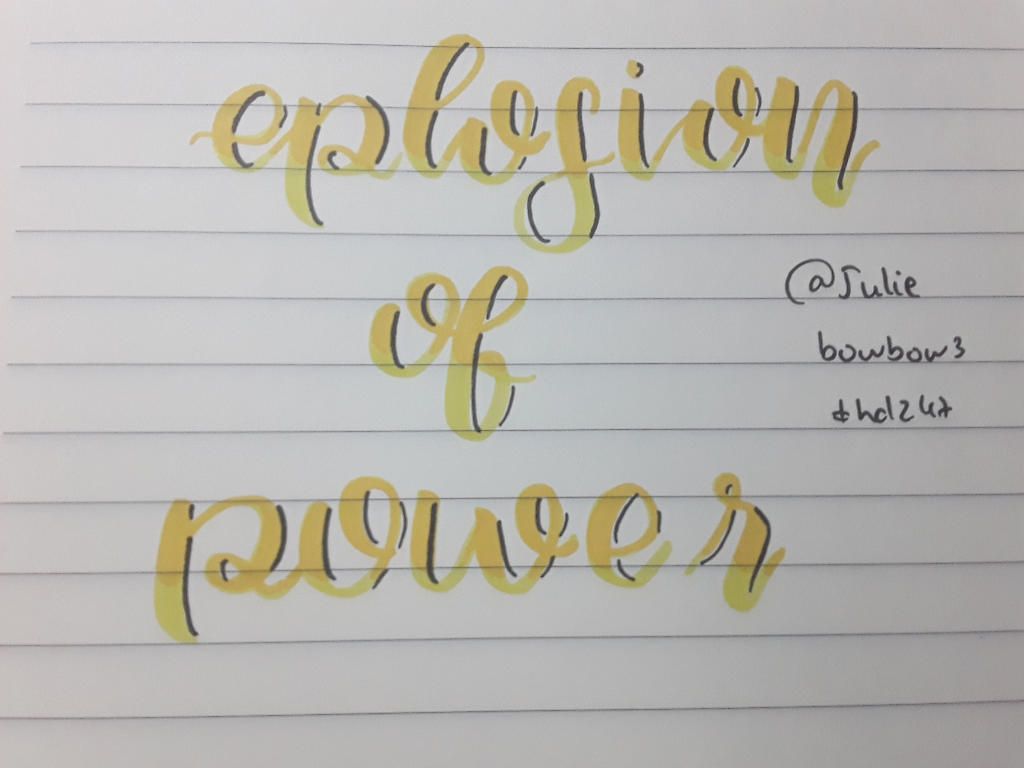 eplosion
of
power
@Julie
bowbow3
#hdl247